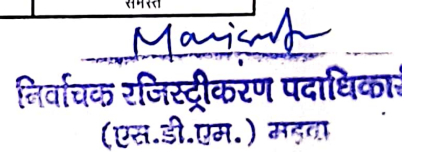 समस्त
निर्वाचक रजिस्ट्रीकरण पदाधिकारी
(एस.डी.एम.)